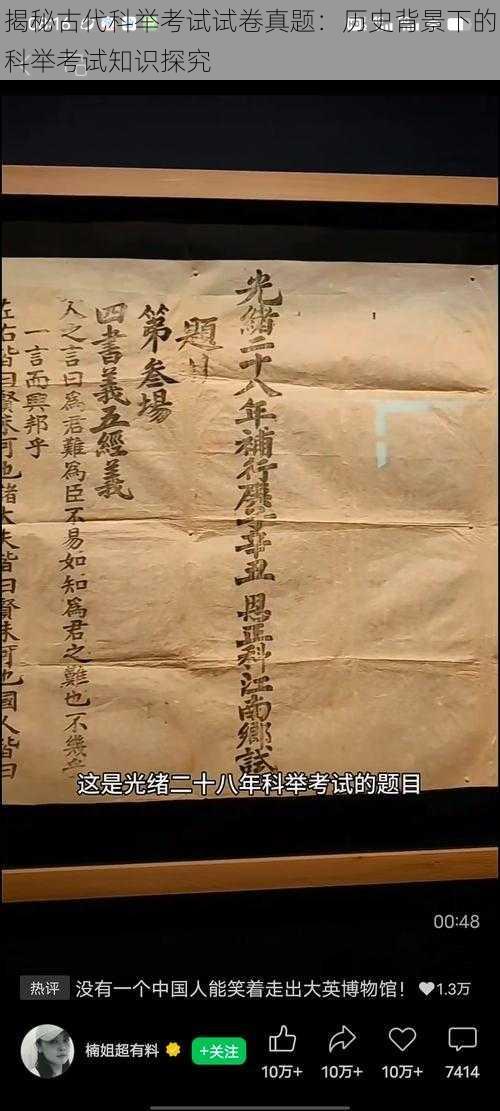 揭秘古代科举考试试卷真题：历史背景下的
科举考试知识探究
光緒二十八年補行庚子辛丑恩正科江南鄉試
題目
第叁場
四書義五經義
人之言曰為君難為臣不易如知為君之難也不幾乎
一言而興邦乎
左右皆曰賢未可也諸大夫皆曰賢未可也國人皆曰
这是光绪二十八年科举考试的题目
00:48
热评 没有一个中国人能笑着走出大英博物馆！ 1.3万
楠姐超有料 +关注
10万+ 10万+ 10万+ 7414